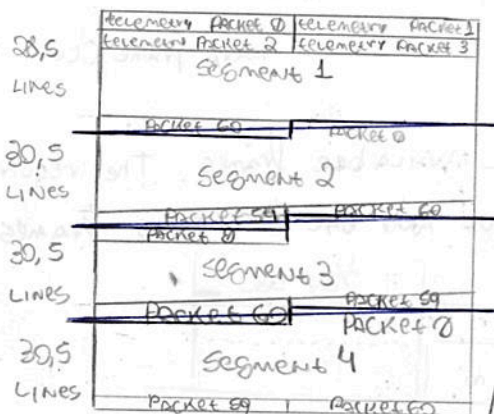 telemetry PACKET 0 telemetry PACKET 1
telemetry PACKET 2 telemetry PACKET 3
28,5
LINES
Segment 1
PACKET 60 PACKET 0
30,5
LINES
Segment 2
PACKET 59 PACKET 60
PACKET 0
30,5
LINES
Segment 3
PACKET 59
PACKET 60 PACKET 0
30,5
LINES
Segment 4
PACKET 59 PACKET 60